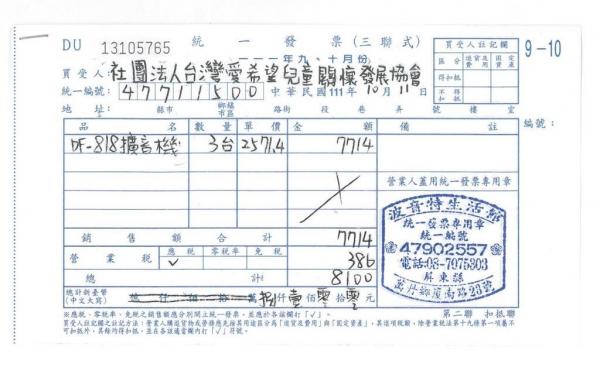 DU 13105765 統一發票(三聯式)
一一一年九、十月份
9-10
買受人: 社團法人台灣愛希望兒童關懷發展協會
統一編號: 47711500 中華民國111年10月11日
地址: 縣市 鄉鎮市區 路街 段 巷 弄 號 樓 室
買受人註記欄
區分 進貨及費用 固定資產
得扣抵
不得扣抵
品名 數量 單價 金額 備註 編號:
DF-818擴音機 3台 2571.4 7714
營業人蓋用統一發票專用章
銷售額合計 7714
營業稅 應稅 零稅率 免稅 386
✓
總計 8100
總計新臺幣(中文大寫) 億仟佰拾萬捌仟壹佰零拾零元
波音特生活館
統一發票專用章
統一編號
47902557
電話:08-7975303
屏東縣
※應稅、零稅率、免稅之銷售額應分別開立統一發票,並應於各該欄打「✓」。 第二聯 扣抵聯
買受人註記欄之註記方法:營業人購進貨物或勞務應先按其用途區分為「進貨及費用」與「固定資產」,其進項稅額,除營業稅法第十九條第一項屬不可扣抵外,其餘均得扣抵,並在各該適當欄內打「✓」符號。